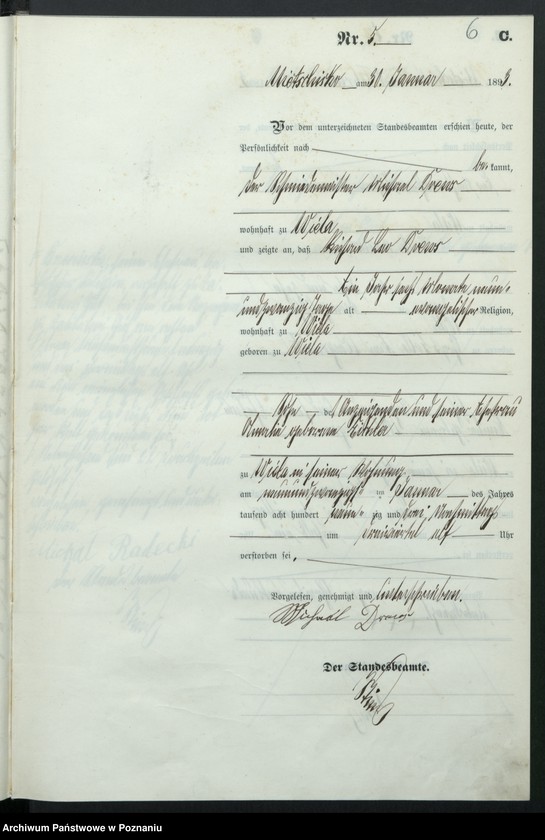 6
Nr. 5.
C.
Mietschisko am 30. Januar 1893.
Vor dem unterzeichneten Standesbeamten erschien heute, der
Persönlichkeit nach
be kannt,
der Schmiedemeister Michael Drews
wohnhaft zu Wiela
und zeigte an, daß Richard Leo Drews
ein Jahr sechs Monate neun-
undzwanzig Tage alt evangelischer Religion,
wohnhaft zu Wiela
geboren zu Wiela
Sohn des Anzeigenden und seiner Ehefrau
Amalie geborene
zu Wiela in seiner Wohnung
am neunundzwanzigsten Januar des Jahres
tausend acht hundert neunzig und drei, Vormittags
um dreiviertel elf Uhr
verstorben sei.
Vorgelesen, genehmigt und unterschrieben.
Michael Drews
Der Standesbeamte.
Archiwum Państwowe w Poznaniu